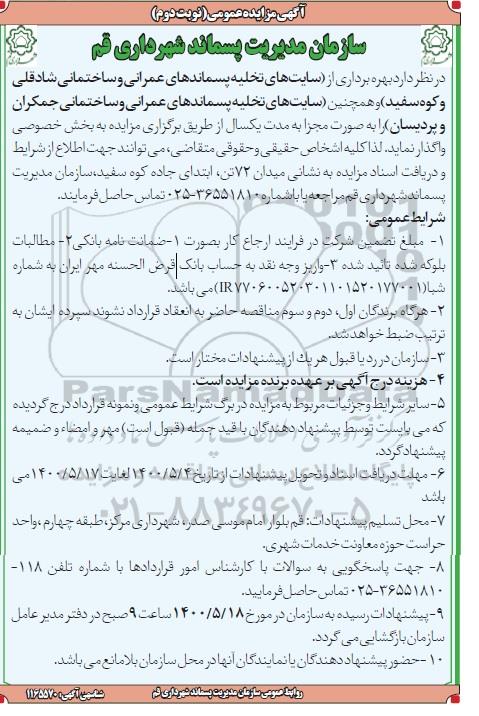 آگهی مزایده عمومی (نوبت دوم)
سازمان مدیریت پسماند شهرداری قم
در نظر دارد بهره برداری از (سایت‌های تخلیه پسماندهای عمرانی و ساختمانی شادقلی
و کوه سفید) و همچنین (سایت‌های تخلیه پسماندهای عمرانی و ساختمانی جمکران
و پردیسان) را به صورت مجزا به مدت یکسال از طریق برگزاری مزایده به بخش خصوصی
واگذار نماید. لذا کلیه اشخاص حقیقی و حقوقی متقاضی، می توانند جهت اطلاع از شرایط
و دریافت اسناد مزایده به نشانی میدان ۷۲ تن، ابتدای جاده کوه سفید، سازمان مدیریت
پسماند شهرداری قم مراجعه یا با شماره ۳۶۵۵۱۸۱۰-۰۲۵ تماس حاصل فرمایند.
شرایط عمومی:
۱- مبلغ تضمین شرکت در فرایند ارجاع کار بصورت ۱-ضمانت نامه بانکی ۲- مطالبات
بلوکه شده تائید شده ۳-واریز وجه نقد به حساب بانک قرض الحسنه مهر ایران به شماره
شبا (IR۷۷۰۶۰۰۵۲۰۳۰۱۱۰۱۵۲۰۱۷۷۰۰۱) می باشد.
۲- هرگاه برندگان اول، دوم و سوم مناقصه حاضر به انعقاد قرارداد نشوند سپرده ایشان به
ترتیب ضبط خواهد شد.
۳- سازمان در رد یا قبول هر یك از پیشنهادات مختار است.
۴- هزینه درج آگهی بر عهده برنده مزایده است.
۵- سایر شرایط و جزئیات مربوط به مزایده در برگ شرایط عمومی و نمونه قرارداد درج گردیده
که می بایست توسط پیشنهاد دهندگان با قید جمله (قبول است) مهر و امضاء و ضمیمه
پیشنهاد گردد.
۶- مهلت دریافت اسناد و تحویل پیشنهادات از تاریخ ۱۴۰۰/۵/۴ لغایت ۱۴۰۰/۵/۱۷ می
باشد
۷- محل تسلیم پیشنهادات: قم بلوار امام موسی صدر، شهرداری مرکز، طبقه چهارم، واحد
حراست حوزه معاونت خدمات شهری.
۸- جهت پاسخگویی به سوالات با کارشناس امور قراردادها با شماره تلفن ۱۱۸-
۳۶۵۵۱۸۱۰-۰۲۵ تماس حاصل فرمایید.
۹- پیشنهادات رسیده به سازمان در مورخ ۱۴۰۰/۵/۱۸ ساعت ۹ صبح در دفتر مدیر عامل
سازمان بازگشایی می گردد.
۱۰- حضور پیشنهاد دهندگان یا نمایندگان آنها در محل سازمان بلامانع می باشد.
روابط عمومی سازمان مدیریت پسماند شهرداری قم
شناسه آگهی: ۱۱۶۵۵۷۰
ParsNamadData
۰۲۱-۸۸۳۴۹۶۷۰-۵